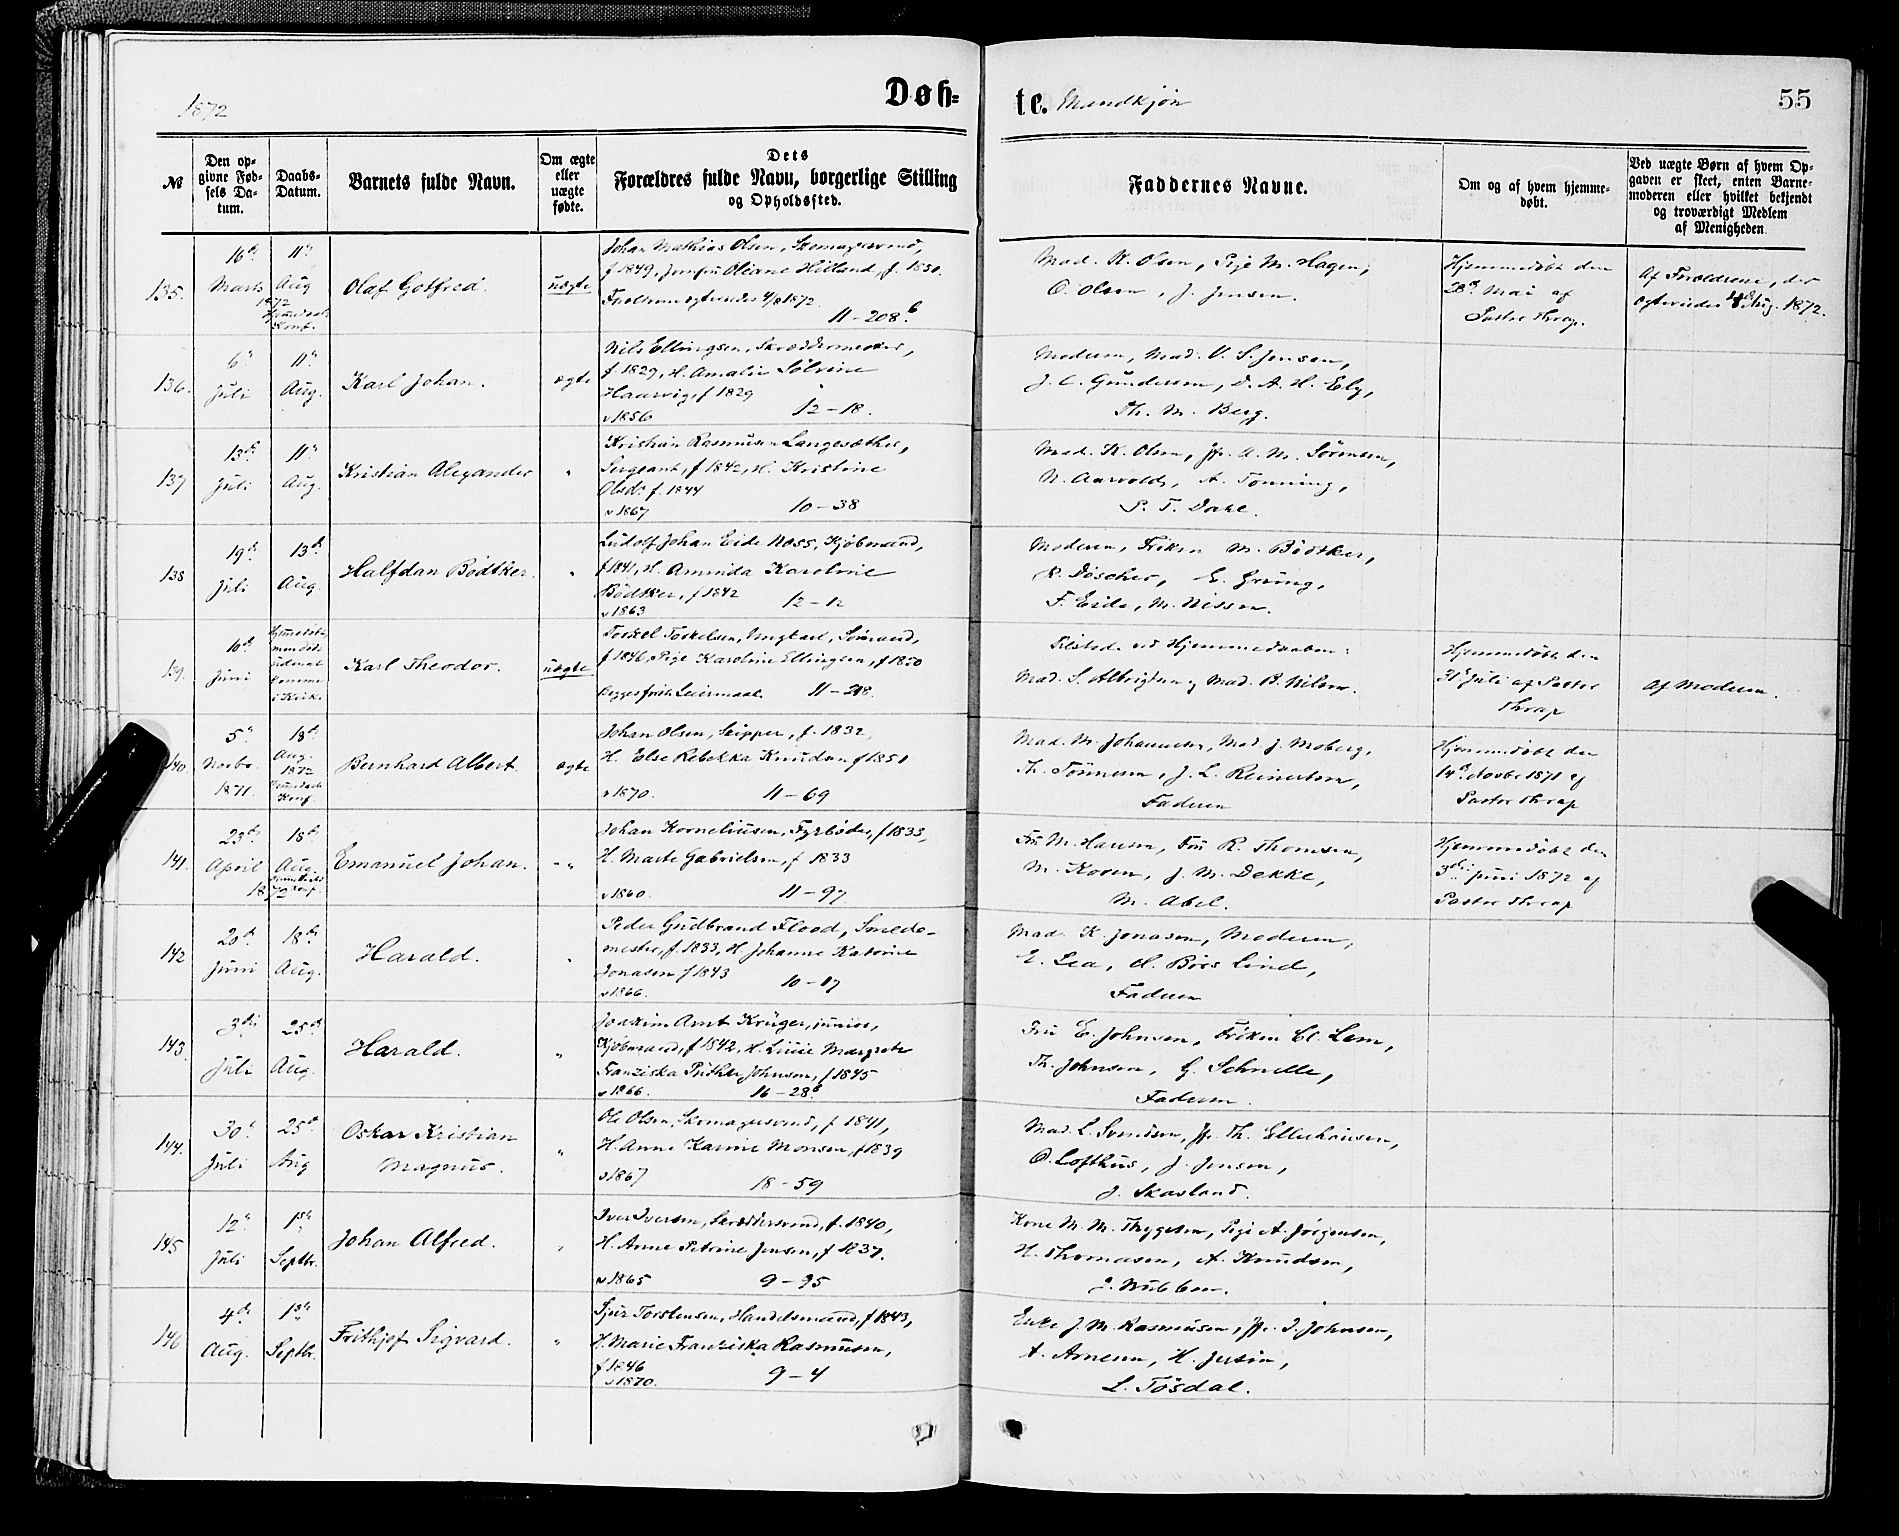 1872
Døb=
te. Mandkjøn
55
№
Den op=
givne Fød=
sels Da=
tum.
Daabs=
Datum.
Barnets fulde Navn.
Om ægte
eller
uægte
fødte.
Dets
Forældres fulde Navn, borgerlige Stilling
og Opholdssted.
Faddernes Navne.
Om og af hvem hjemme=
døbt.
Ved uægte Børn af hvem Op=
gaven er skeet, enten Barne=
moderen eller hvilket bekjendt
og troværdigt Medlem
af Menigheden.
135.
16de
Marts
1872
11te
Aug
Olaf Gotfred.
uægte
Johan Mathias Olsen, Skomagersvend,
f 1849, Jomfru Oliane Hilland, f. 1850.
11 - 208.b
Mad. K. Olsen, Pige M. Hagen,
O. Olsen, J. Jensen.
Hjemmedøbt den
28d Mai af
Pastor Thrap.
Af Forældrene, der
ægteviedes 4d Aug. 1872.
136.
6te
Juli
11te
Aug.
Karl Johan.
ægte
Nils Ellingsen, Skræddermester,
f 1829, H. Amalie Sølvine
Haarvig, f 1829
v 1856
12 - 18.
Moderen, Mad. V. S. Jensen,
J. C. Gundersen, D. A. H. Ely,
Th. M. Berg.
137
13de
Juli
11te
Aug.
Kristian Alexander
"
Kristian Rasmusen Langesæther,
Sergeant, f 1842, H. Kristine
Olsdr f. 1844
v 1867
10 - 38
Mad. K. Olsen, Jfr. A. M. Sørensen,
N. Aarvold, A. Tonning,
P. T. Dahl.
138
19de
Juli
13de
Aug.
Halfdan Bødtker.
"
Ludolf Johan Eide Noss, Kjøbmand,
f 1841, H. Aminda Karoline
Bødtker, f 1842
v 1863
12 - 12
Moderen, Frøken M. Bødtker,
R. Døscher, E. Grung,
F. Eide, M. Nissen.
139.
10de
Juni
Karl Theodor.
uægte
Torkel Torkelsen, Ungkarl, Sømand,
f 1846, Pige Karoline Ellingsen, f 1850
Begges første Leiermaal.
11 - 218.
Tilstede ved Hjemmedaaben:
Mad. S. Albrigtsen og Mad. B. Nilsen.
Hjemmedøbt den
31te Juli af Pastor
Thrap
Af Moderen.
140.
5te
Novbr.
1871.
18de
Aug.
1872
Bernhard Albert.
ægte
Johan Olsen, Skipper, f. 1832,
H. Else Rebekka Knudsen f 1851
v 1870.
11 - 69
Mad. M. Johannesen, Mad. J. Moberg,
Th. Tønnesen, J. L. Reinertsen,
Faderen
Hjemmedøbt den
14d Novbr 1871 af
Pastor Thrap
141.
23de
April
1872
18de
Aug.
Emanuel Johan.
- "
Johan Korneliusen, Fyrbøder, f 1833,
H. Marte Gabrielsen, f 1833
v 1860.
11 - 97
Fru M. Hansen, Fru R. Thomsen,
M. Koren, J. M. Dekke,
M. Abel.
Hjemmedøbt den
3die Juni 1872 af
Pastor Thrap
142
20de
Juni
18de
Aug.
Harald.
"
Peder Gudbrand Flood, Smede-
mester, f. 1833, H Johanne Katrine
Jonasen f 1843
v 1866.
10 - 17
Mad. K. Jonasen, Moderen,
E. Lea, H. Børs Lind,
Faderen
143.
3die
Juli
25de
Aug.
Harald.
"
Joakim Arnt Krüger, junior,
Kjøbmand, f 1842, H. Lucie Margrete
Franziska Püthe Johnsen, f 1845
v 1866.
16 - 28a
Fru E. Johnsen, Frøken Cl. Lem,
Th. Johnsen, G. Schnelle,
Faderen.
144.
30te
Juli
25de
Aug
Oskar Kristian
Magnus.
"
Ole Olsen, Skomagersvend, f 1841,
H Anne Karine Monsen, f 1839
v 1867
18 - 59
Mad. L. Svendsen, Jfr. Th. Ellerhausen,
O. Lofthus, J. Jensen,
J. Skavland.
145
12te
Juli
1ste
Septbr.
Johan Alfred.
"
Iver Iversen, Skræddersvend, f. 1840,
H. Anne Petrine Jensen, f 1837.
v 1865
9 - 95
Kone M. M. Thygesen, Pige A. Jørgensen,
H. Thomasen, A. Knudsen,
J. Wubben.
146
4de
Aug.
1ste
Septbr.
Frithjof Sigvard.
"
Sjur Torstensen, Handelsmand, f 1843,
H. Marie Franziska Rasmusen,
f 1846
v 1870.
9 - 4
Enke J. M. Rasmusen, Jfr. I. Johnsen,
A. Arnesen, H. Jersin,
L. Tøsdal.